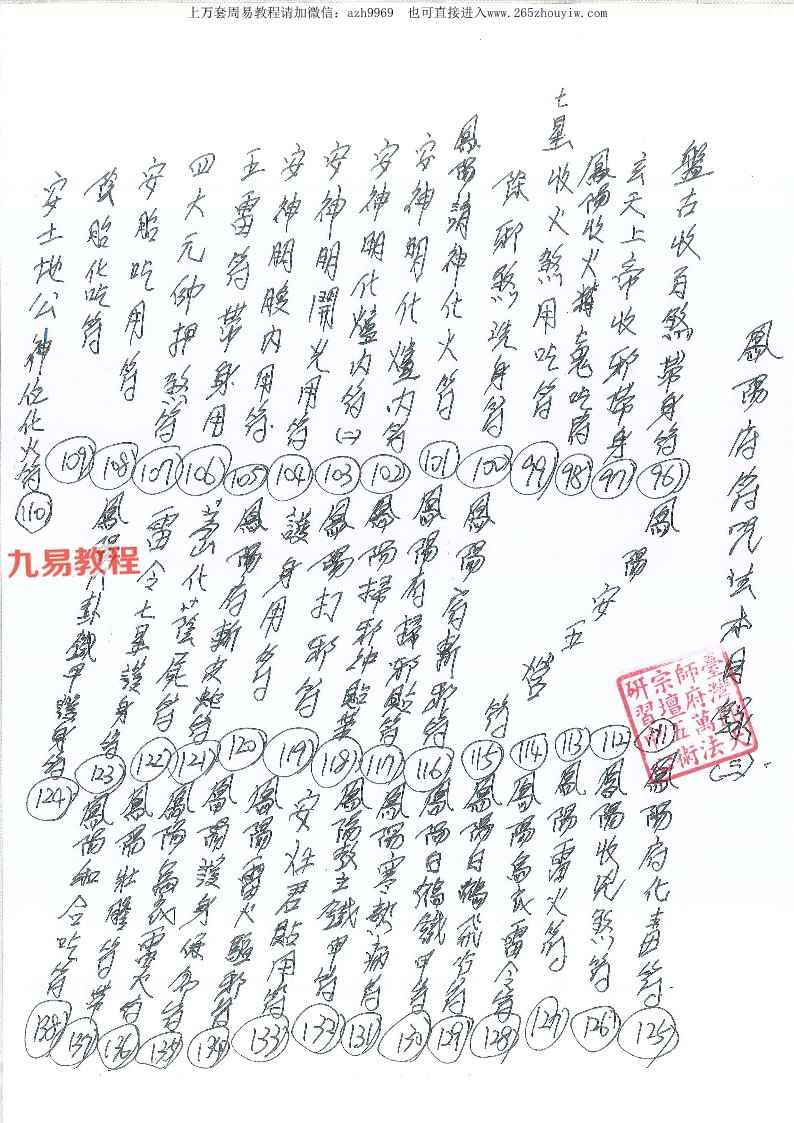 上万套周易教程请加微信：azh9969 也可直接进入www.265zhouyiw.com
鳳陽府符咒法本目錄(二)
盤古收百煞帶身符 96
玄天上帝收邪帶身 97
鳳陽收火 吃符 98
七星收火煞用吃符 99
除邪煞洗身符 100
鳳陽請神化火符 101
安神明化爐内符 102
安神明化爐内符(二) 103
安神明開光用符 104
安神明腹内用符 105
五雷符帶身用 106
四大元帥押煞符 107
安胎吃用符 108
胎化吃符 109
安土地公神位化火符 110
鳳陽安五營符 111 112 113 114 115
鳳陽府斬邪符 116
鳳陽府掃邪貼符 117
鳳陽掃邪 貼 118
鳳陽打邪符 119
護身用符 120
鳳陽府斬 符 121
化陰屍符 122
雷令七星護身符 123
鳳陽八卦鐵甲護身符 124
鳳陽府化毒符 125
鳳陽收 煞符 126
鳳陽雷火符 127
鳳陽 雷令符 128
鳳陽白鶴飛 符 129
鳳陽白鶴鐵甲符 130
鳳陽寒熱病符 131
鳳陽教主鐵甲符 132
安灶君貼用符 133
鳳陽雷火驅邪符 134
鳳陽護身 符 135
鳳陽 雷火符 136
鳳陽壯膽符帶 137
鳳陽和合吃符 138
臺灣
師府萬法
宗壇五術
研習
九易教程